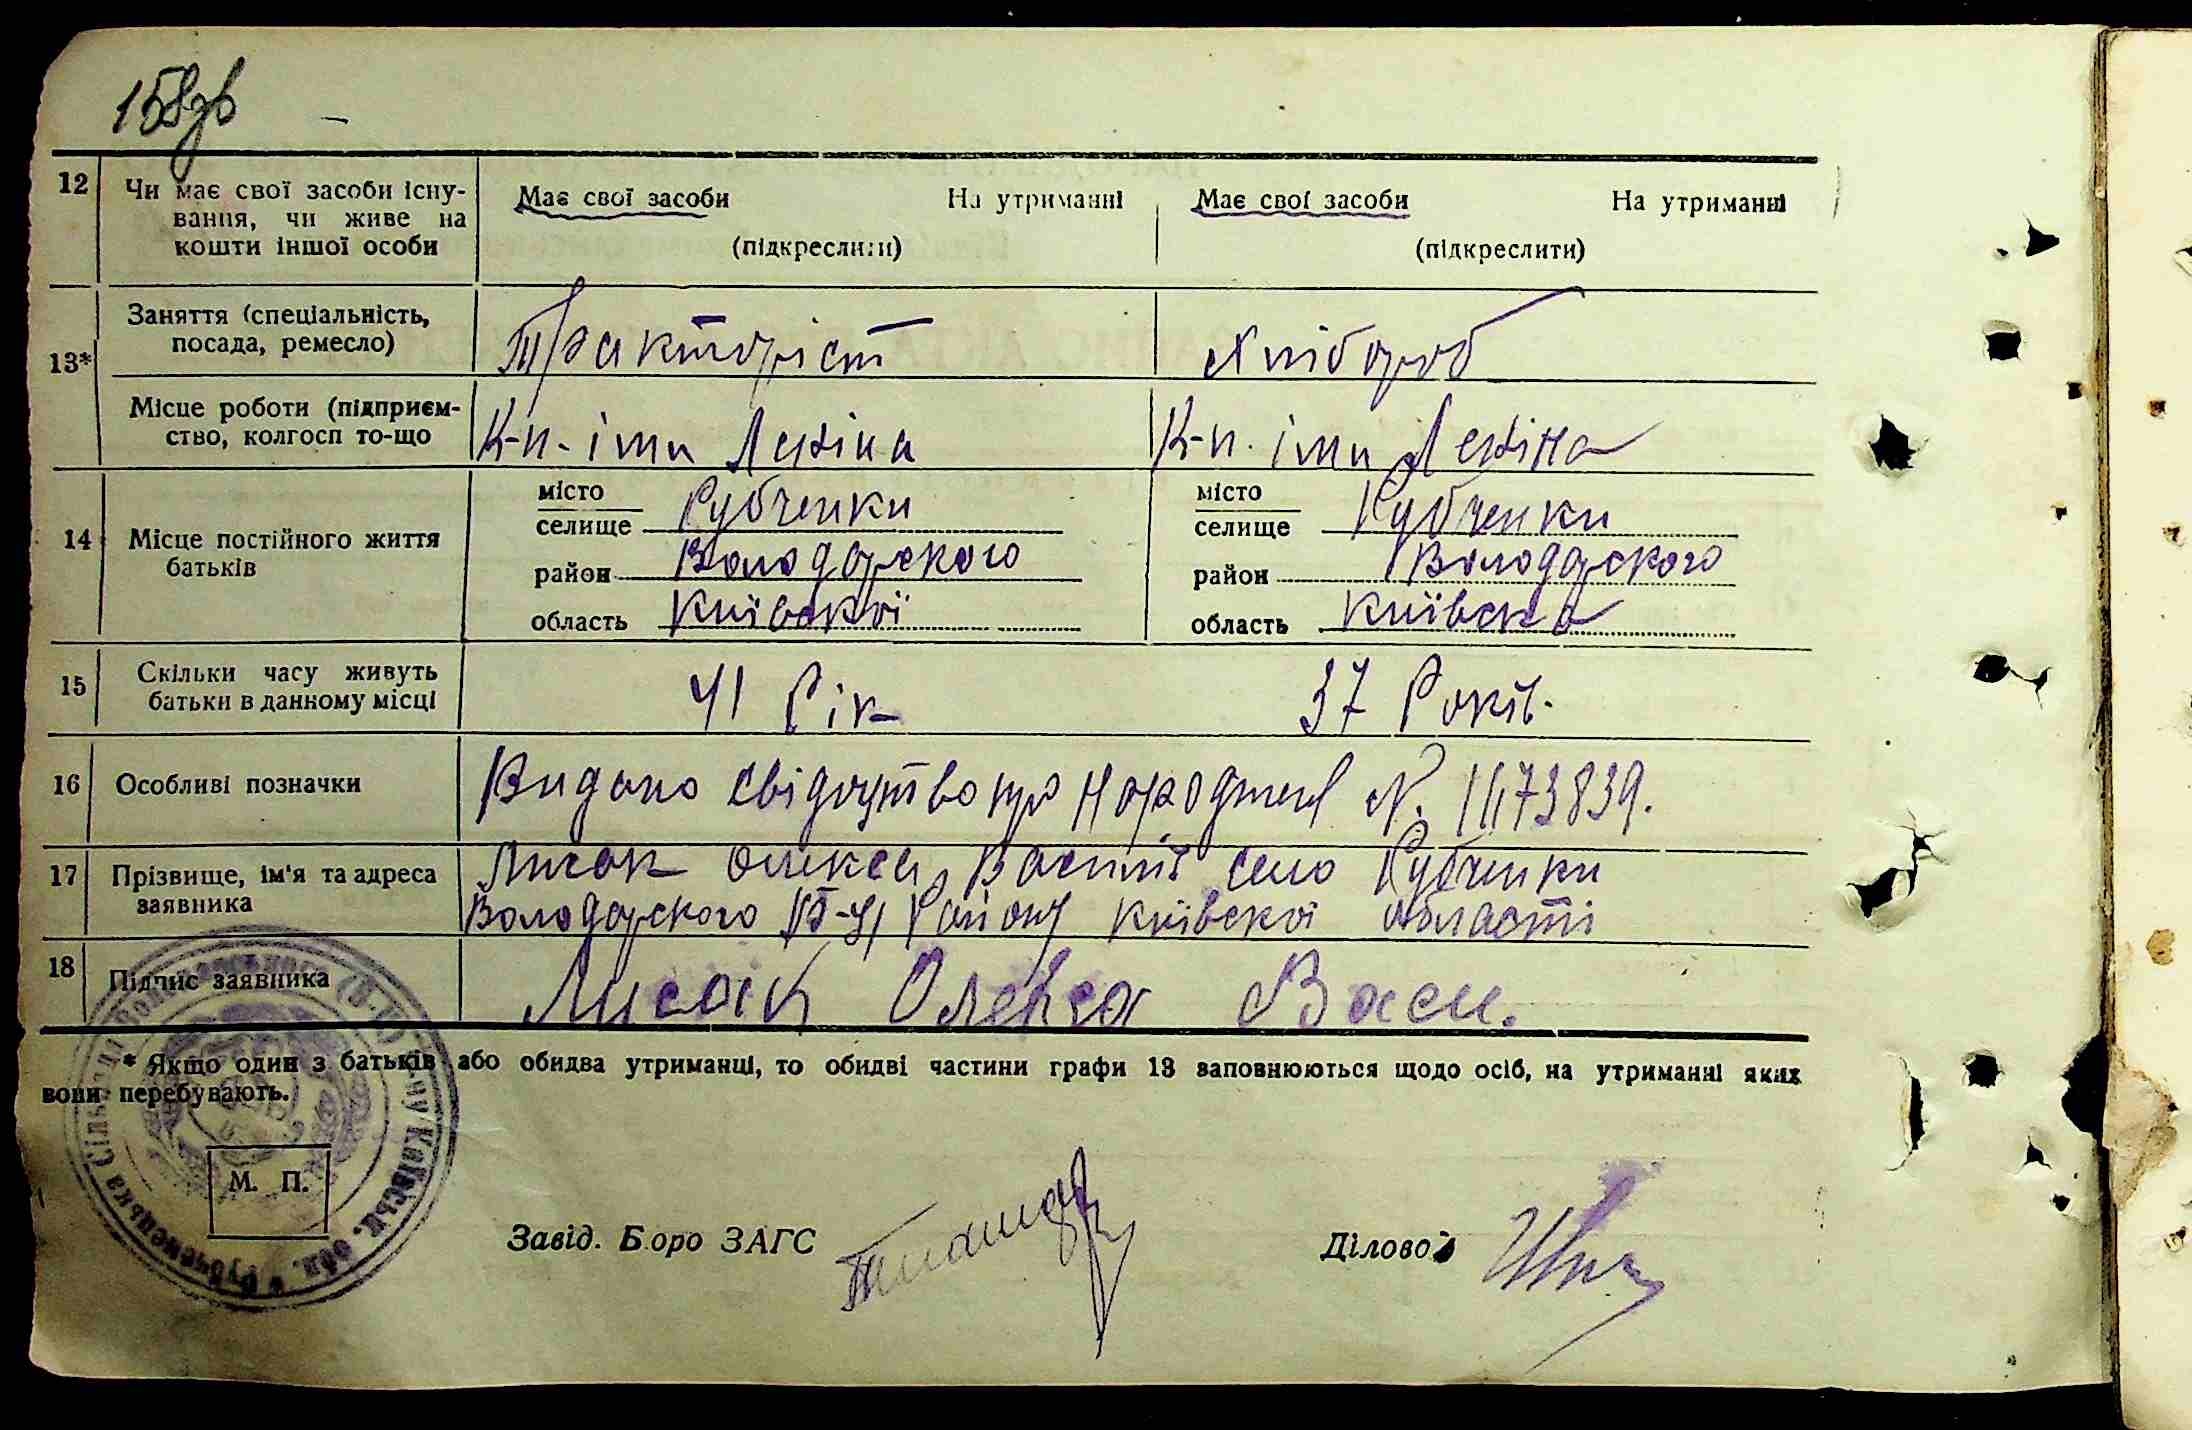 158зв
12 Чи має свої засоби існу-
вання, чи живе на
кошти іншої особи
Має свої засоби На утриманні
(підкреслити)
Має свої засоби На утриманні
(підкреслити)
13*
Заняття (спеціальність,
посада, ремесло)
Тракторіст
Хлібороб
Місце роботи (підприєм-
ство, колгосп то-що
К-п. іми Леніна
К-п. іми Леніна
14 Місце постійного життя
батьків
місто
селище Рубченки
район Володарского
область Київскої
місто
селище Рубченки
район Володарского
область Київска
15 Скільки часу живуть
батьки в данному місці
41 Рік
37 Років.
16 Особливі позначки
Видано свідоцтво про народженя №
17 Прізвище, ім'я та адреса
заявника
Лисак Олекса Васил село Рубченки
Володарского Району Київскої области
18 Підпис заявника
Лисак Олекса Васи.
* Якщо один з батьків або обидва утриманці, то обидві частини графи 13 заповнюються щодо осіб, на утриманні яких
вони перебувають.
М. П.
Завід. Бюро ЗАГС
Діловод